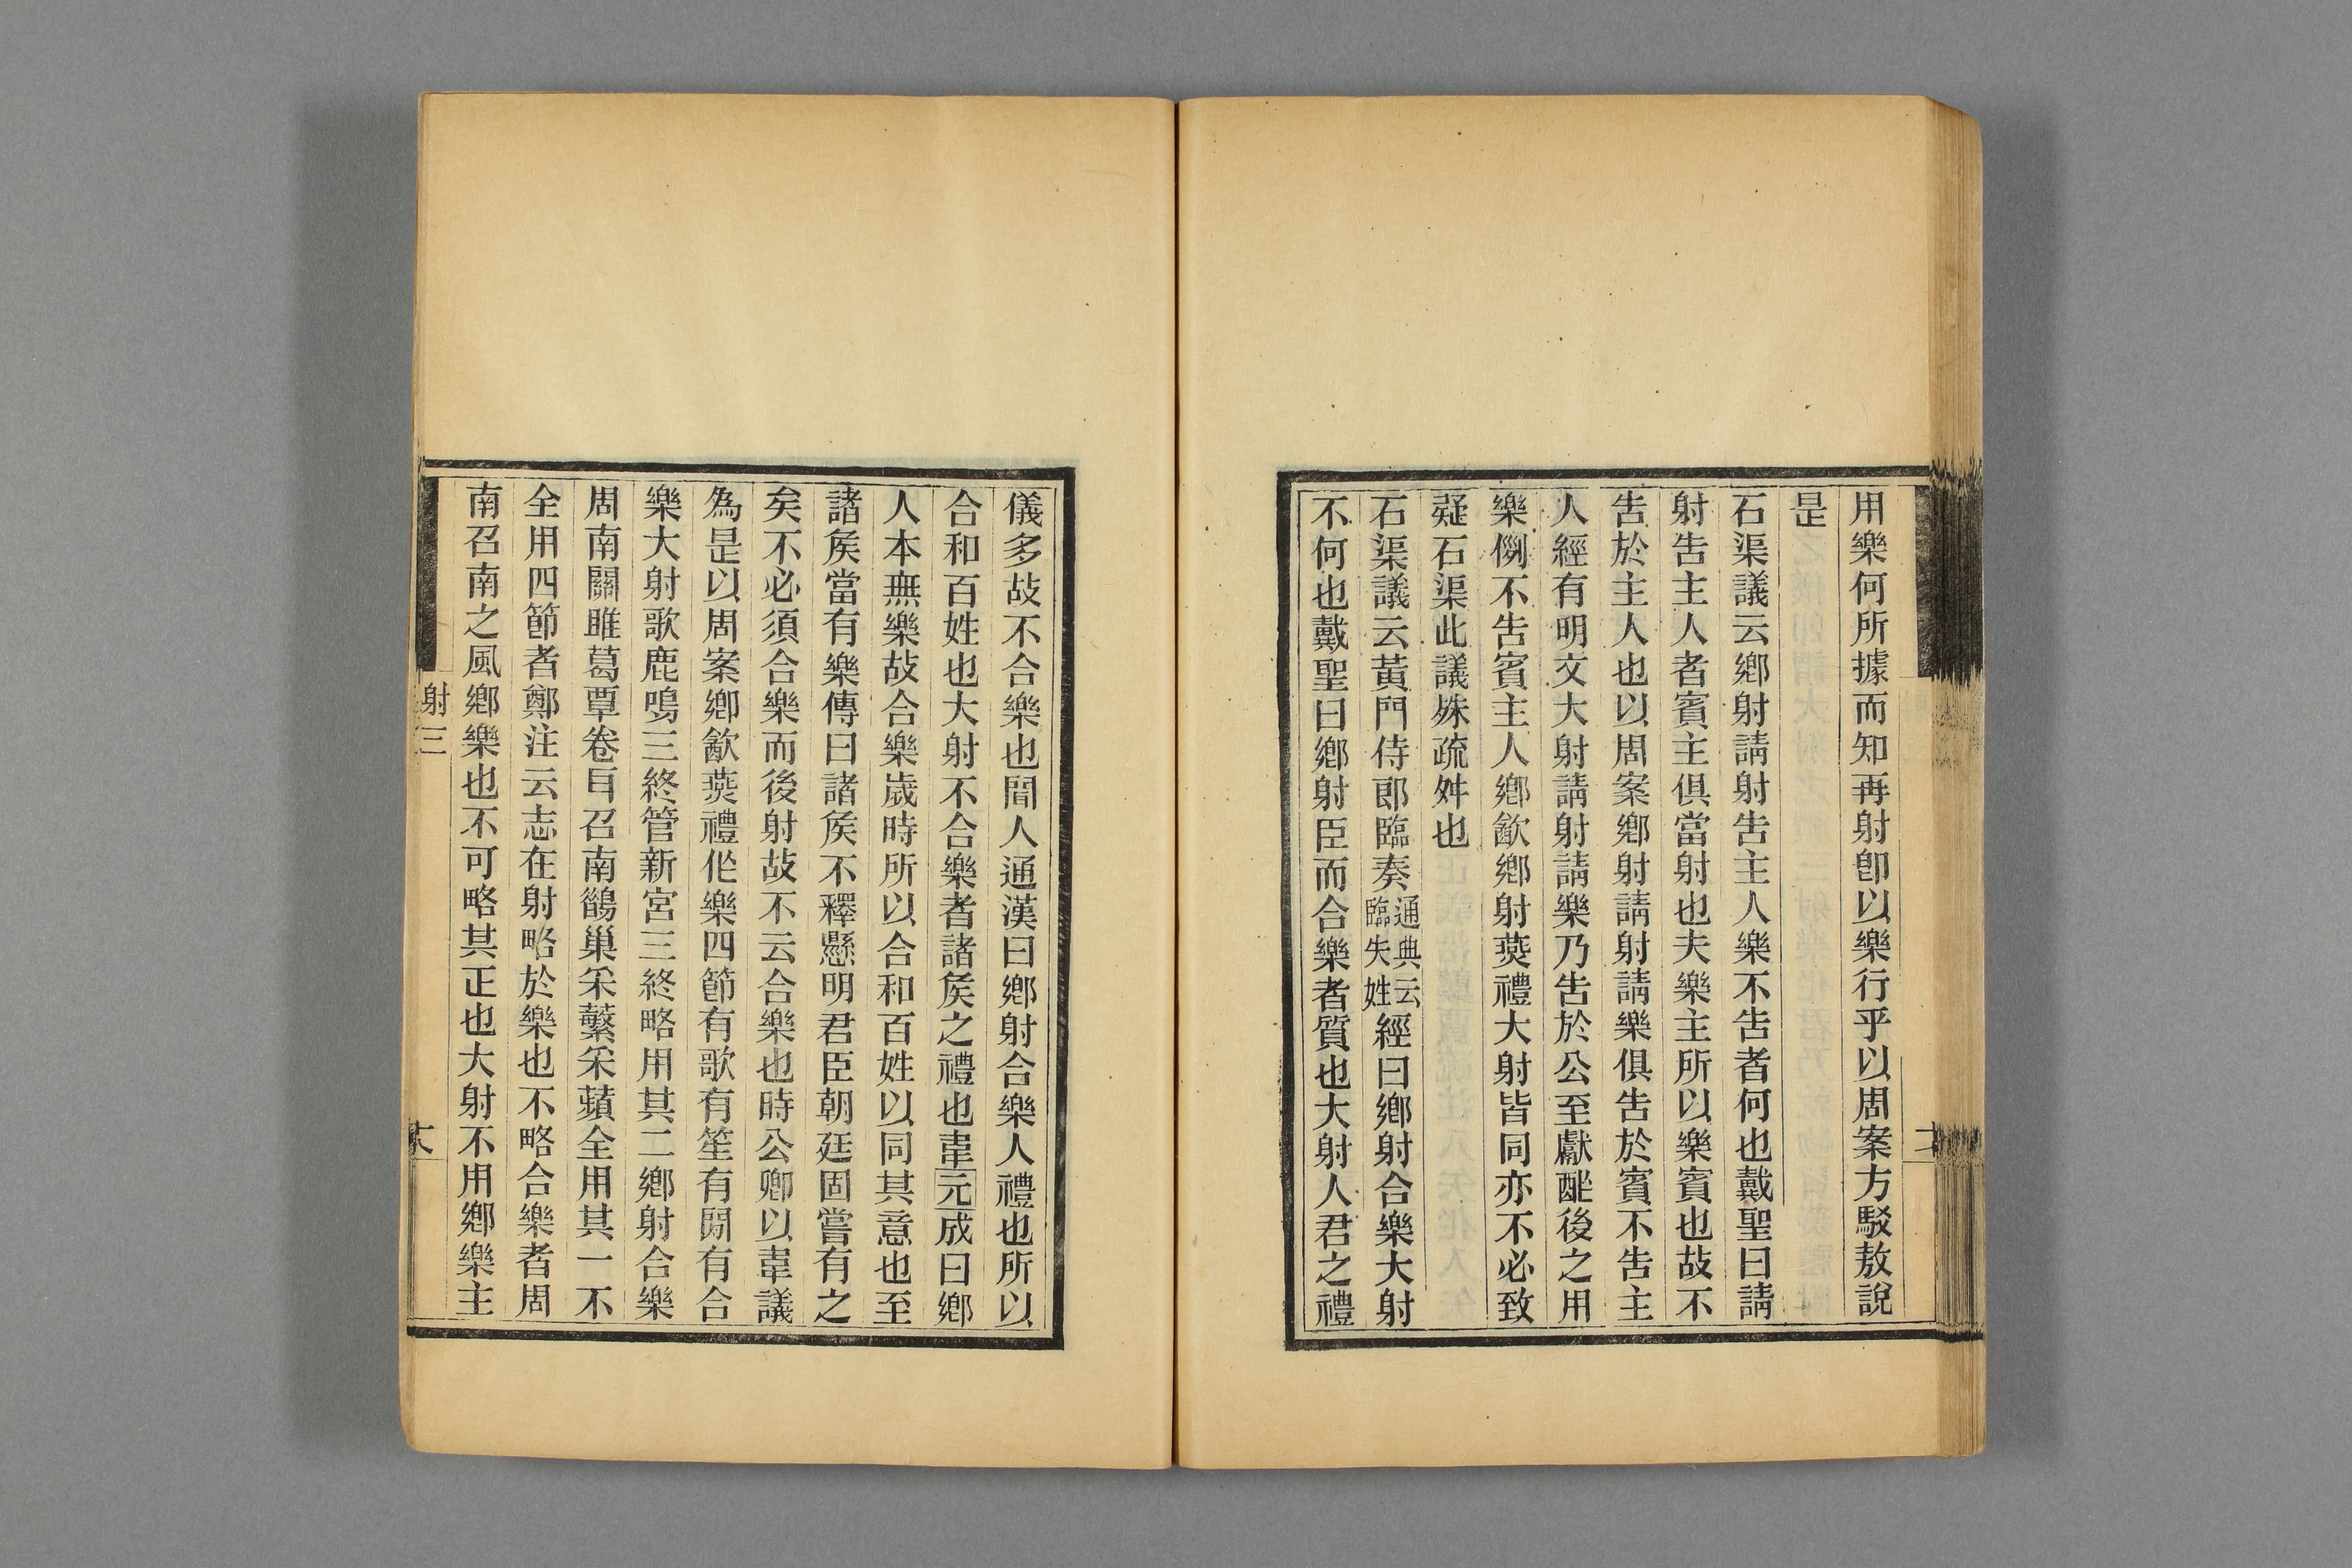 用樂何所據而知再射卽以樂行乎以周案方駁敖說
是
石渠議云鄉射請射告主人樂不告者何也戴聖曰請
射告主人者賓主俱當射也夫樂主所以樂賓也故不
告於主人也以周案鄉射請射請樂俱告於賓不告主
人經有明文大射請射請樂乃告於公至獻酬後之用
樂例不告賓主人鄉飮鄉射燕禮大射皆同亦不必致
疑石渠此議殊疏舛也
石渠議云黃門侍郞臨奏通典云臨失姓經曰鄉射合樂大射
不何也戴聖曰鄉射臣而合樂者質也大射人君之禮
儀多故不合樂也聞人通漢曰鄉射合樂人禮也所以
合和百姓也大射不合樂者諸矦之禮也韋元成曰鄉
人本無樂故合樂歲時所以合和百姓以同其意也至
諸矦當有樂傳曰諸矦不釋懸明君臣朝廷固嘗有之
矣不必須合樂而後射故不云合樂也時公卿以韋議
爲是以周案鄉飮燕禮作樂四節有歌有笙有閒有合
樂大射歌鹿鳴三終管新宮三終略用其二鄉射合樂
周南關雎葛覃卷耳召南鵲巢采蘩采蘋全用其一不
全用四節者鄭注云志在射略於樂也不略合樂者周
南召南之風鄉樂也不可略其正也大射不用鄉樂主
射三